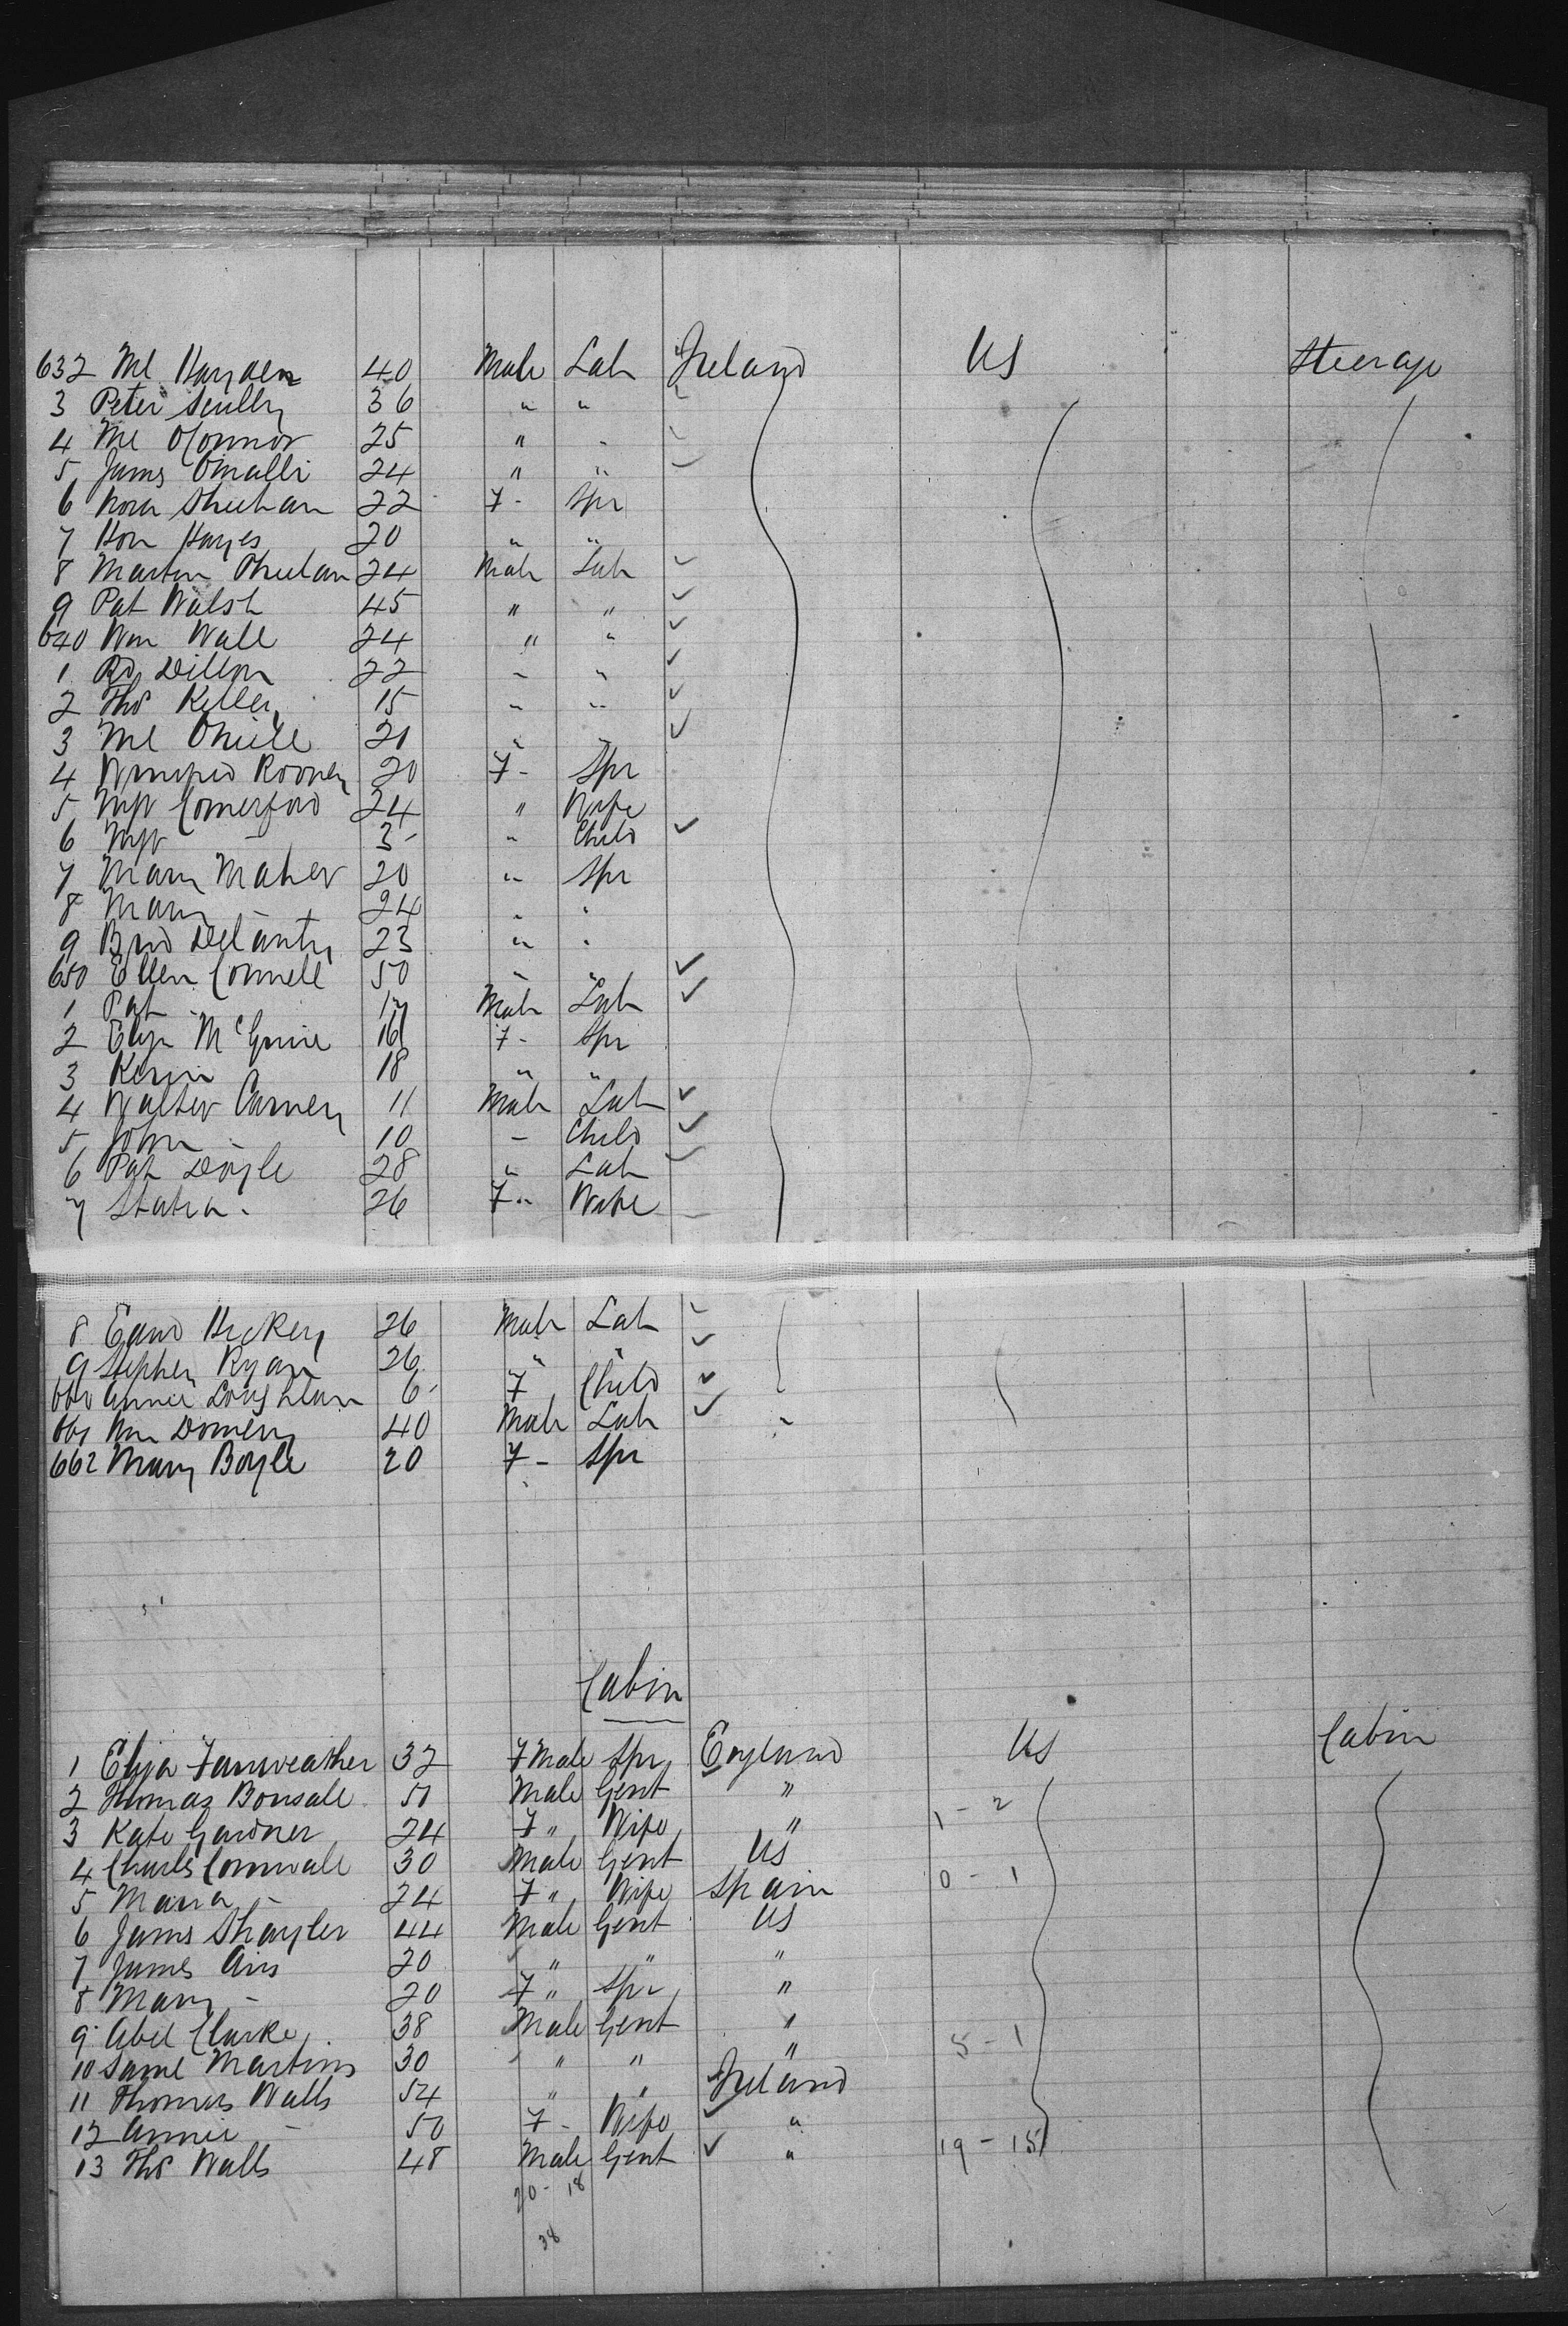 632 Ml Hayden 40 Male Lab Ireland US Steerage
3 Peter Scully 36 " "
4 Ml OConnor 25 " "
5 James Omalli 24 " "
6 Nora Sheehan 22 F - Spr
7 Hon Hayes 20 " "
8 Martin Phelan 24 Male Lab
9 Pat Walsh 45 " "
640 Wm Wall 24 " "
1 Rd Dillon 22 " "
2 Thos Kelley 15 " "
3 Ml Oneill 21 " "
4 Rooney 20 F - Spr
5 Comerford 24 " Wife
6 - 3 " Child
7 Mary Maher 20 " Spr
8 Mary - 24 " "
9 Brid Delanty 23 " "
650 Ellen Connell 50 " "
1 Pat - 17 Male Lab
2 Eliza McGuire 16 F - Spr
3 18 " "
4 Walter Carney 11 Male Lab
5 John - 10 - Child
6 Pat Doyle 28 " Lab
7 Statia - 26 F " Wife
8 Edmd Hickey 26 Male Lab
9 Stephen Ryan 26 " "
660 Annie Loughlan 6 F Child
661 Wm 40 Male Lab
662 Mary Boyle 20 F - Spr
Cabin
1 Eliza Fairweather 32 FMale Spr England US Cabin
2 Thomas Bonsall 51 Male Gent "
1 - 2
3 Kate Gardner 24 F " Wife "
4 Charls Cornwall 30 Male Gent US
0 - 1
5 Maria - 24 F " Wife Spain
6 James Shayler 44 Male Gent US
7 James Airs 20 " " "
8 Mary - 20 F " Spr "
9 Abel Clarke 38 Male Gent "
5 - 1
10 Saml Martins 30 " " "
11 Thomas Walls 54 " " Ireland
12 Annie - 50 F - Wife "
13 Thos Walls 48 Male Gent "
19 - 15
20 - 18
38